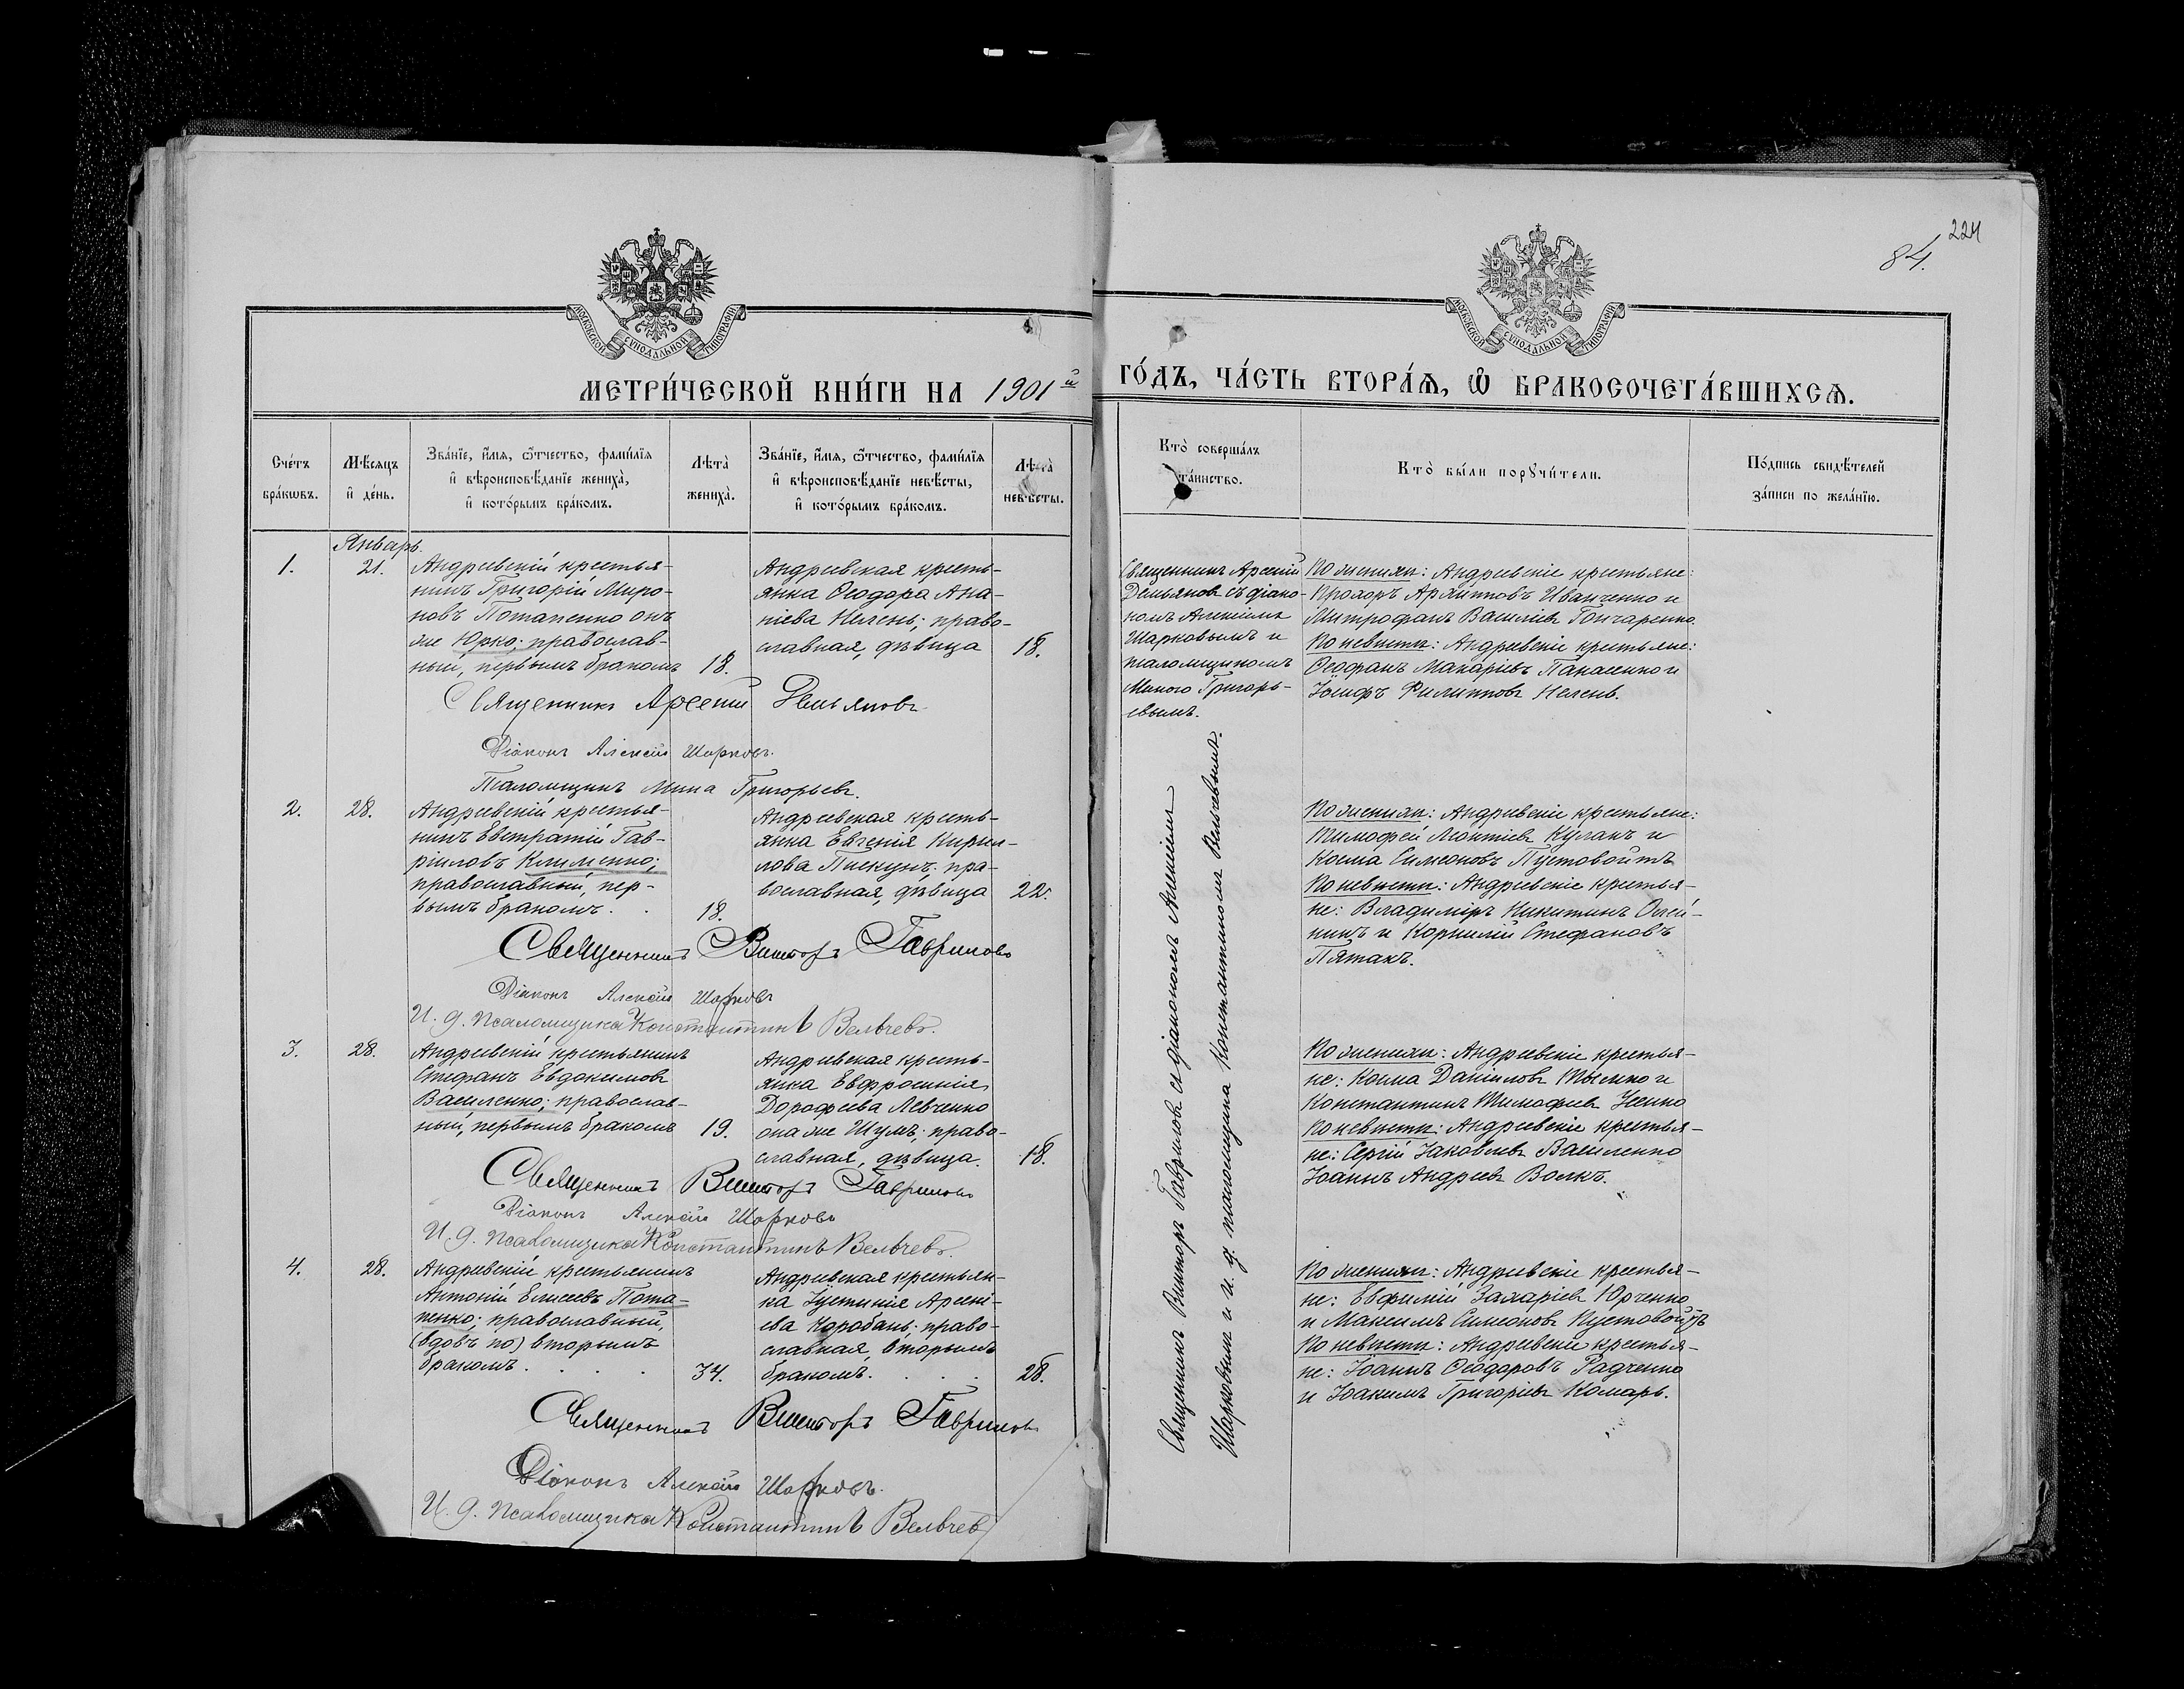 224
84.
МОСКОВСКОЙ СѴНОДАЛЬНОЙ ТИПОГРАФІИ
МОСКОВСКОЙ СѴНОДАЛЬНОЙ ТИПОГРАФІИ
МЕТРИ́ЧЕСКОЙ КНИ́ГИ НА 1901й
ГО́ДЪ, ЧА́СТЬ ВТОРА́Ѧ, Ѽ БРАКОСОЧЕТА́ВШИХСѦ.
Сче́тъ
бра́кѡвъ.
Мѣ́сяцъ
и҆ де́нь.
Зва́нїе, и҆́мя, ѻ҆́тчество, фами́лїя
и҆ вѣроисповѣ́данїе жениха̀,
и҆ кото́рымъ бра́комъ.
Лѣта̀
жениха̀.
Зва́нїе, и҆́мя, ѻ҆́тчество, фами́лїя
и҆ вѣроисповѣ́данїе невѣ́сты,
и҆ кото́рымъ бра́комъ.
Лѣта̀
невѣ́сты.
Кто̀ соверша́лъ
та́инство.
Кто̀ бы́ли порꙋчи́тели.
По́дпись свидѣ́телей
за́писи по жела́нїю.
Январь.
1.
21.
Андреевскій крестья-
нинъ Григорій Миро-
новъ Потапенко онъ
же Юрко; православ-
ный, первымъ бракомъ
18.
Андреевская кресть-
янка Ѳеодора Ана-
ніева Нелень; право-
славная, дѣвица
18.
Священникъ Арсеній
Демьяновъ съ діако-
номъ Алексіемъ
Шарковымъ и
псаломщикомъ
Миною Григорь-
евымъ.
По женихѣ: Андреевскіе крестьяне:
Прохоръ Архипповъ Иванченко и
Митрофанъ Василіевъ Гончаренко
По невѣстѣ: Андреевскіе крестьяне:
Ѳеофанъ Макаріевъ Панасенко и
Іосифъ Филипповъ Нелень.
Священникъ Арсеній Демьяновъ
Діаконъ Алексій Шарковъ.
Псаломщикъ Мина Григорьевъ.
2.
28.
Андреевскій крестья-
нинъ Евстратій Гав-
ріиловъ Клименко;
православный, пер-
вымъ бракомъ . .
18.
Андреевская кресть-
янка Евгенія Кирил-
лова Пискунъ; пра-
вославная, дѣвица
22.
По женихѣ: Андреевскіе крестьяне:
Тимофей Леонтіевъ Куланъ и
Косма Симеоновъ Пустовойтъ
По невѣстѣ: Андреевскіе крестья-
не: Владиміръ Никитинъ Олей-
никъ и Корнилій Стефановъ
Пятакъ.
Священникъ Викторъ Гавриловъ
Діаконъ Алексій Шарковъ
И. д. псаломщика Константинъ Вельчевъ.
3.
28.
Андреевскій крестьянинъ
Стефанъ Евдокимовъ
Василенко; православ-
ный, первымъ бракомъ
19.
Андреевская кресть-
янка Евфросинія
Дорофеева Левченко
она же Шумъ; право-
славная, дѣвица.
18.
По женихѣ: Андреевскіе крестья-
не: Косма Даніиловъ Тымко и
Константинъ Тимофеевъ Усенко
По невѣстѣ: Андреевскіе крестья-
не: Сергій Іаковлевъ Василенко
Іоаннъ Андреевъ Волкъ.
Священникъ Викторъ Гавриловъ
Діаконъ Алексій Шарковъ
И. д. псаломщика Константинъ Вельчевъ.
4.
28.
Андреевскій крестьянинъ
Антоній Елисеевъ Пота-
пенко; православный,
(вдовъ по) вторымъ
бракомъ . . .
34.
Андреевская крестьян-
ка Іустинія Арсені-
ева Коробань; право-
славная, вторымъ
бракомъ. . . .
28.
По женихѣ: Андреевскіе крестья-
не: Евфимій Захаріевъ Юрченко
и Максимъ Симеоновъ Пустовойтъ
По невѣстѣ: Андреевскіе крестья-
не: Іоаннъ Ѳеодоровъ Радченко
и Іоакимъ Григоріевъ Комарь.
Священникъ Викторъ Гавриловъ
Діаконъ Алексій Шарковъ.
И. д. псаломщика Константинъ Вельчевъ
Священникъ Викторъ Гавриловъ съ діакономъ Алексіемъ
Шарковымъ и и. д. псаломщика Константиномъ Вельчевымъ.